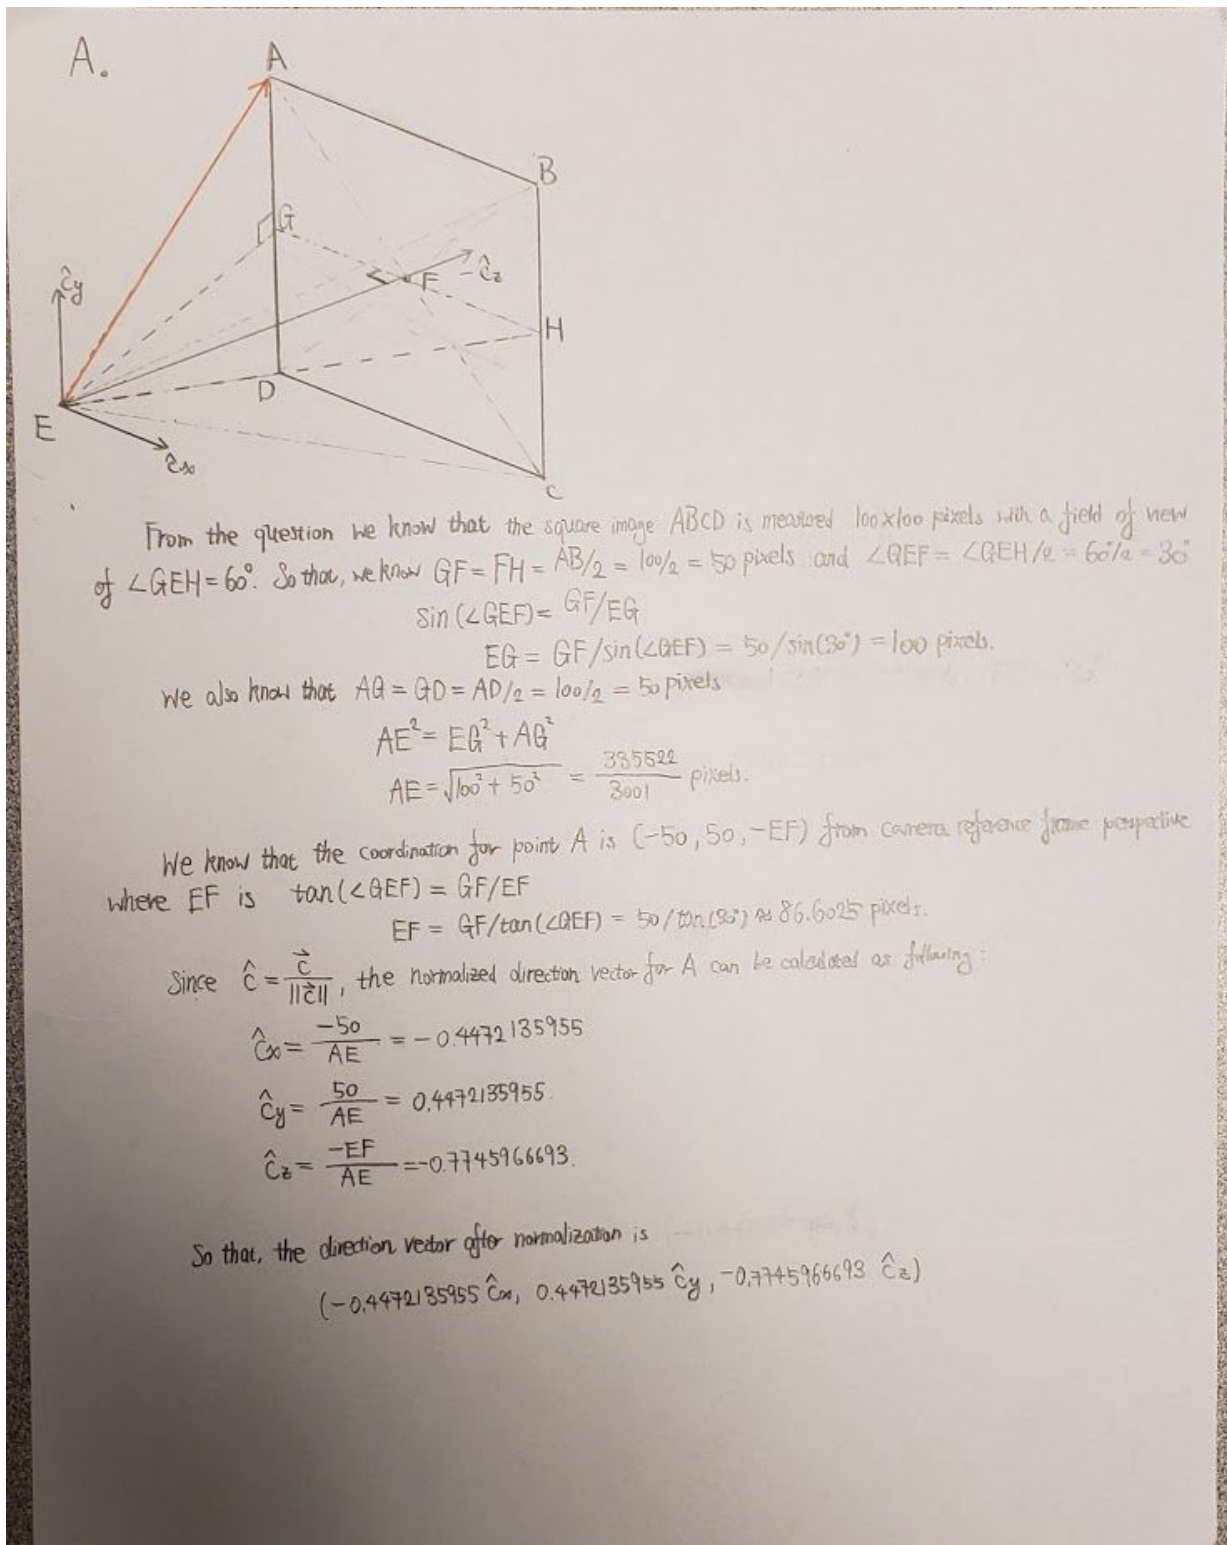 A.
A
B
G
F
-ĉz
ĉy
H
D
E
ĉx
C
From the question we know that the square image ABCD is measured 100x100 pixels with a field of view
of ∠GEH = 60°. So that, we know GF = FH = AB/2 = 100/2 = 50 pixels and ∠GEF = ∠GEH/2 = 60°/2 = 30°
Sin(∠GEF) = GF/EG
EG = GF/sin(∠GEF) = 50/sin(30°) = 100 pixels.
We also know that AG = GD = AD/2 = 100/2 = 50 pixels
AE² = EG² + AG²
AE = √100² + 50² = 335522/3001 pixels.
We know that the coordination for point A is (-50, 50, -EF) from camera reference frame perspective
where EF is tan(∠GEF) = GF/EF
EF = GF/tan(∠GEF) = 50/tan(30°) ≈ 86.6025 pixels.
Since ĉ = c⃗/||c⃗||, the normalized direction vector for A can be calculated as following:
ĉx = -50/AE = -0.4472135955
ĉy = 50/AE = 0.4472135955.
ĉz = -EF/AE = -0.7745966693.
So that, the direction vector after normalization is
(-0.4472135955 ĉx, 0.4472135955 ĉy, -0.7745966693 ĉz)